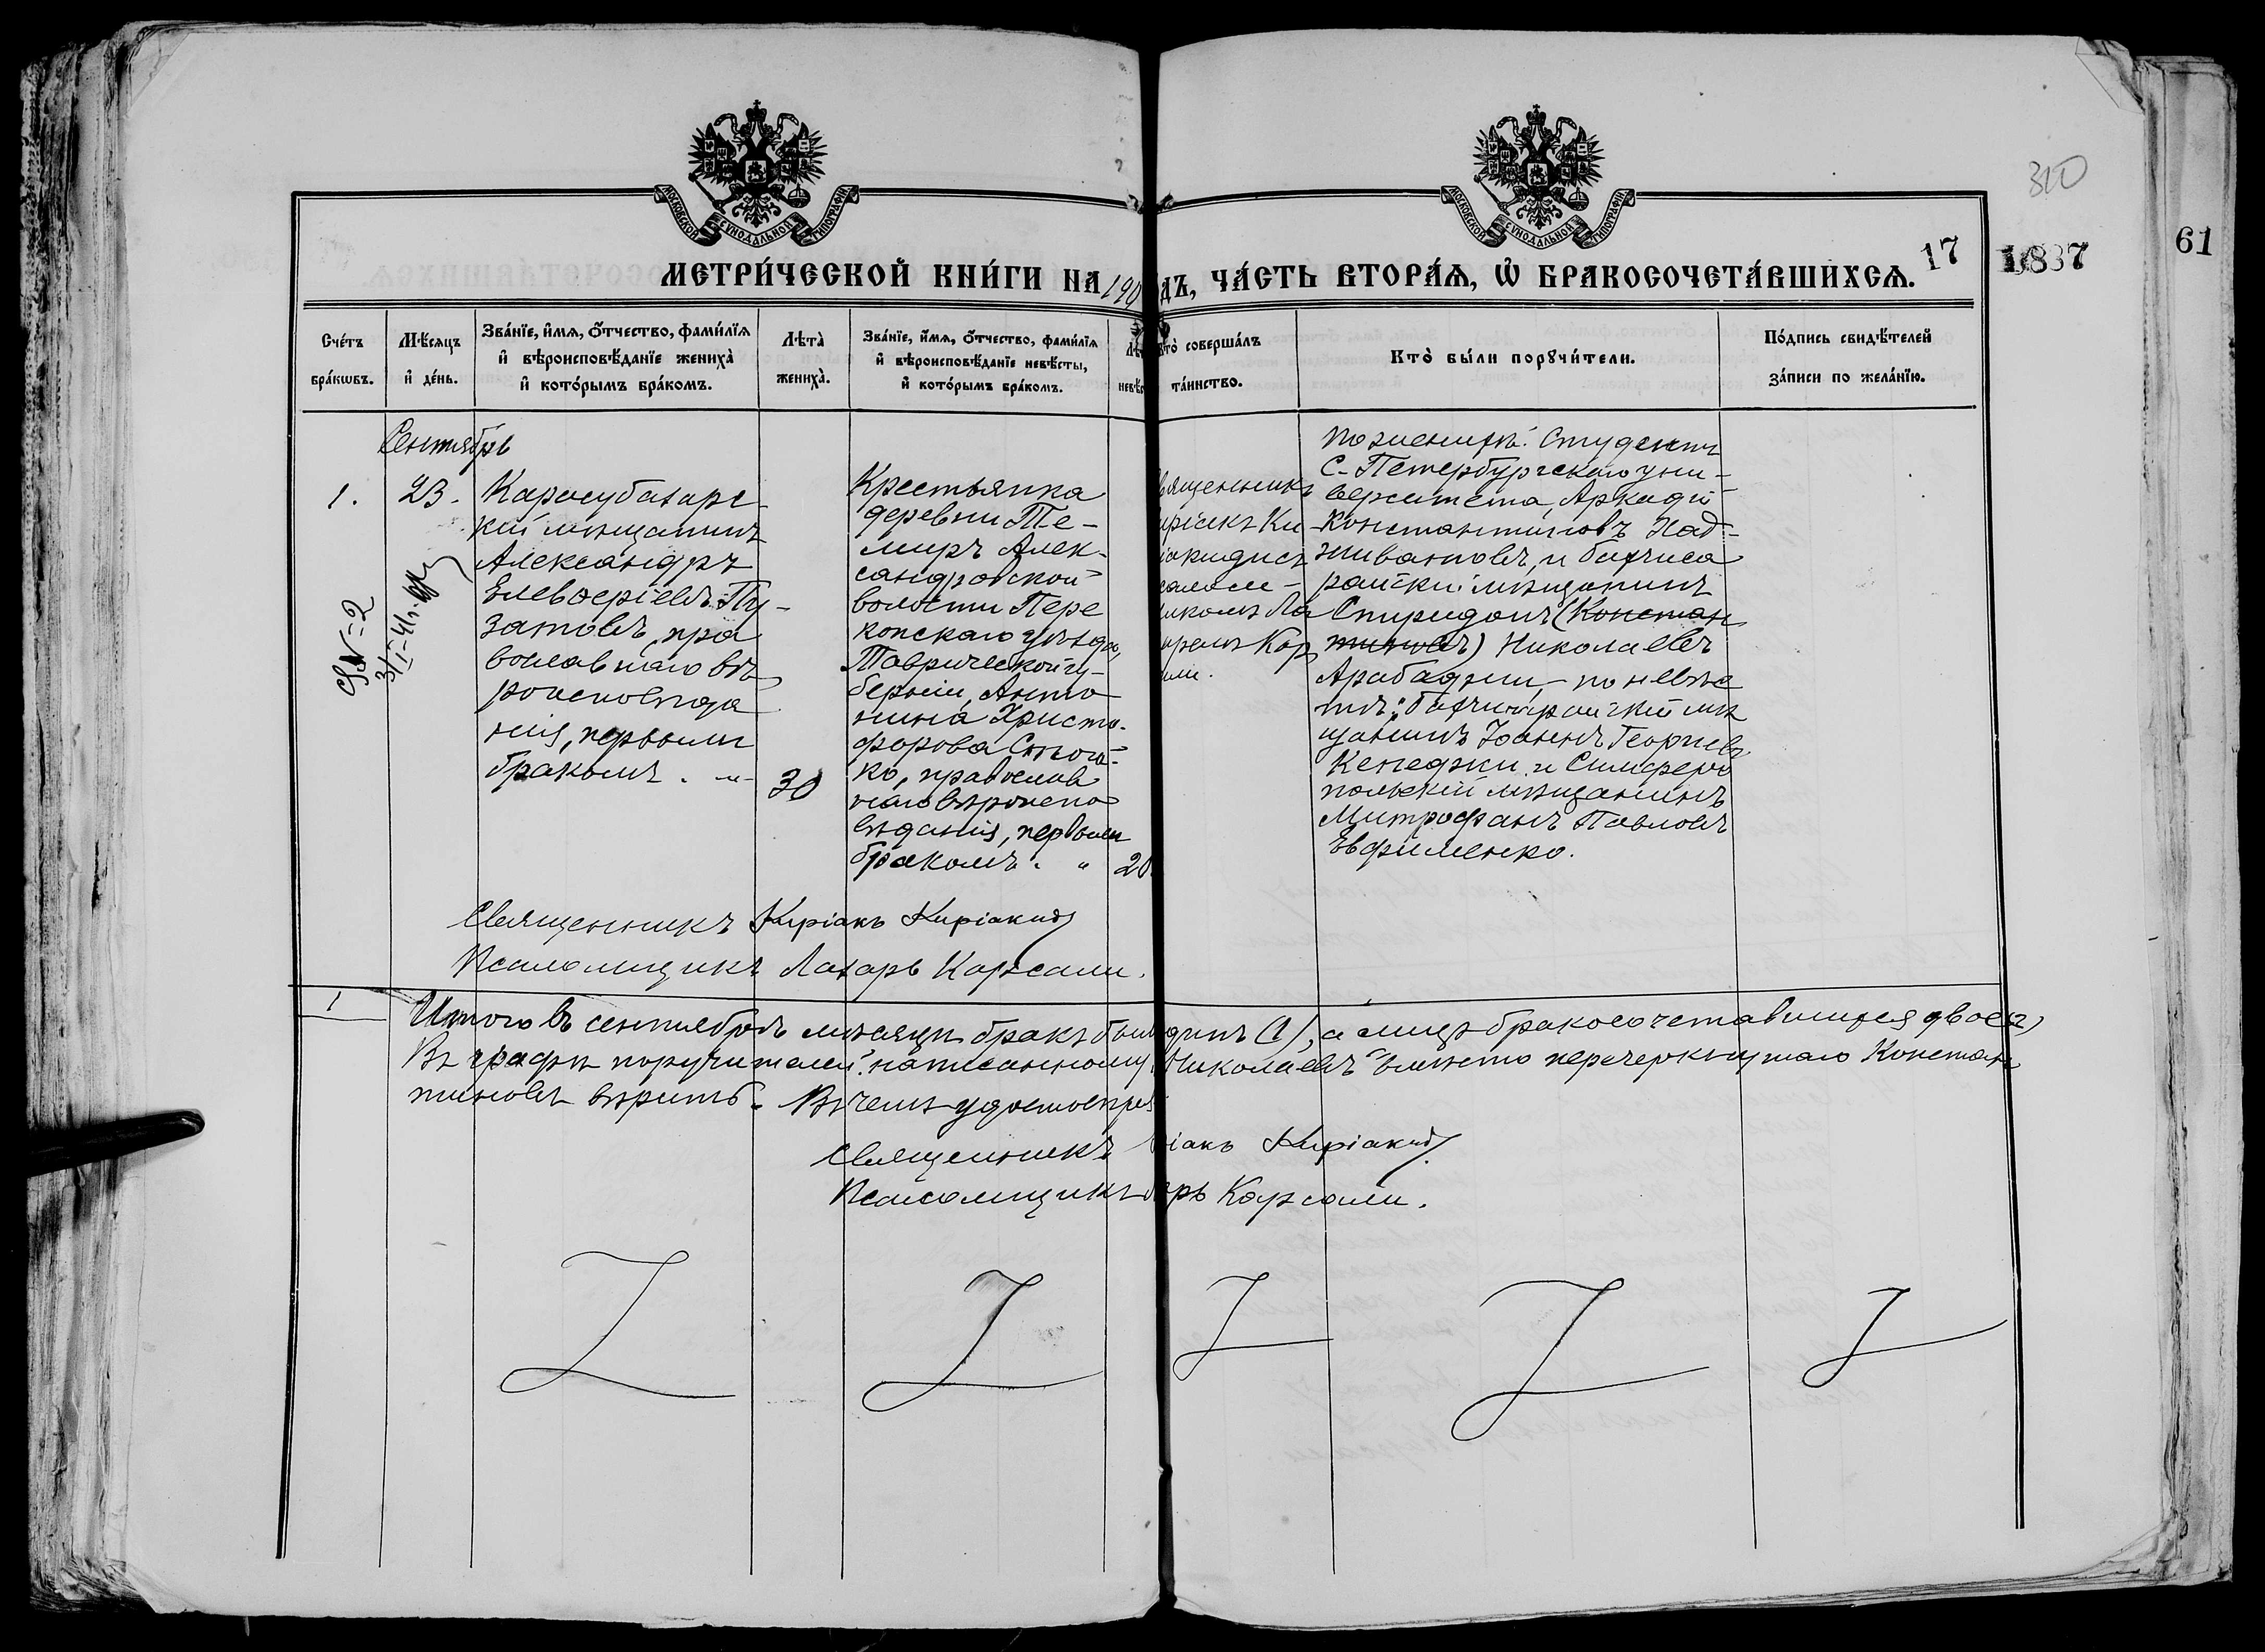 МОСКОВСКОЙ СѴНОДАЛЬНОЙ ТИПОГРАФІИ
МОСКОВСКОЙ СѴНОДАЛЬНОЙ ТИПОГРАФІИ
310
МЕТРИ́ЧЕСКОЙ КНИ́ГИ НА 190
ДЪ, ЧА́СТЬ ВТОРА́Ѧ, Ѡ҆ БРАКОСОЧЕТА́ВШИХСѦ.
17
1837
61
Сче́тъ бра́кѡвъ.
Мѣ́сяцъ и҆ де́нь.
Зва́нїе, и҆́мѧ, ѻ҆́тчество, фами́лїѧ и҆ вѣроисповѣ́данїе жениха̀ и҆ кото́рымъ бра́комъ.
Лѣта̀ жениха̀.
Зва́нїе, и҆́мѧ, ѻ҆́тчество, фами́лїѧ и҆ вѣроисповѣ́данїе невѣ́сты, и҆ кото́рымъ бра́комъ.
Лѣт невѣс
кто̀ соверша́лъ та́инство.
Кто̀ бы́ли порꙋчи́тели.
По́дпись свидѣ́телей за́писи по жела́нїю.
Сентябрь
1.
23.
Карасубазарс-
кій мѣщанинъ
Александръ
Елевферіевъ Пу-
затовъ, пра
вославнаго вѣ
роисповѣда
нія, первымъ
бракомъ. "
30
Крестьянка
деревни Те-
миръ Алек-
сандровской
волости Пере
копскаго уѣзда,
Таврической гу-
берніи, Анто
нина Христо-
форова Снѣго-
ко, православ
наго вѣроиспо
вѣданія, первымъ
бракомъ. "
20.
вященникъ
иріакъ Ки
іакидисъ
салом-
икомъ Ла
аремъ Кар
ли.
По женихѣ: Студентъ
С-Петербургскаго уни-
верситета, Аркадій
Константиновъ Хад-
живановъ, и бахчиса
райскій мѣщанинъ
Спиридонъ (Констан
тиновъ) Николаевъ
Арабаджи, - по невѣс
тѣ: Бахчисарайскій мѣ
щанинъ Іоаннъ Георгіевъ
Кенеджи и Симферо
польскій мѣщанинъ
Митрофанъ Павловъ
Ефименко.
№ 2
3/I-41г.
Священникъ Киріакъ Киріакид
Псаломщикъ Лазарь Карсали.
1
Итого въ сентябрѣ мѣсяцѣ бракъ был динъ (1), а лицъ бракосочетавшихся двое (2)
Въ графѣ поручителей: написанному "Николаевъ" вмѣсто перечеркнутаго Констан
тиновъ вѣрить. Въ чемъ удостовѣря
Священникъ іакъ Киріакид
Псаломщикъ арь Карсали.